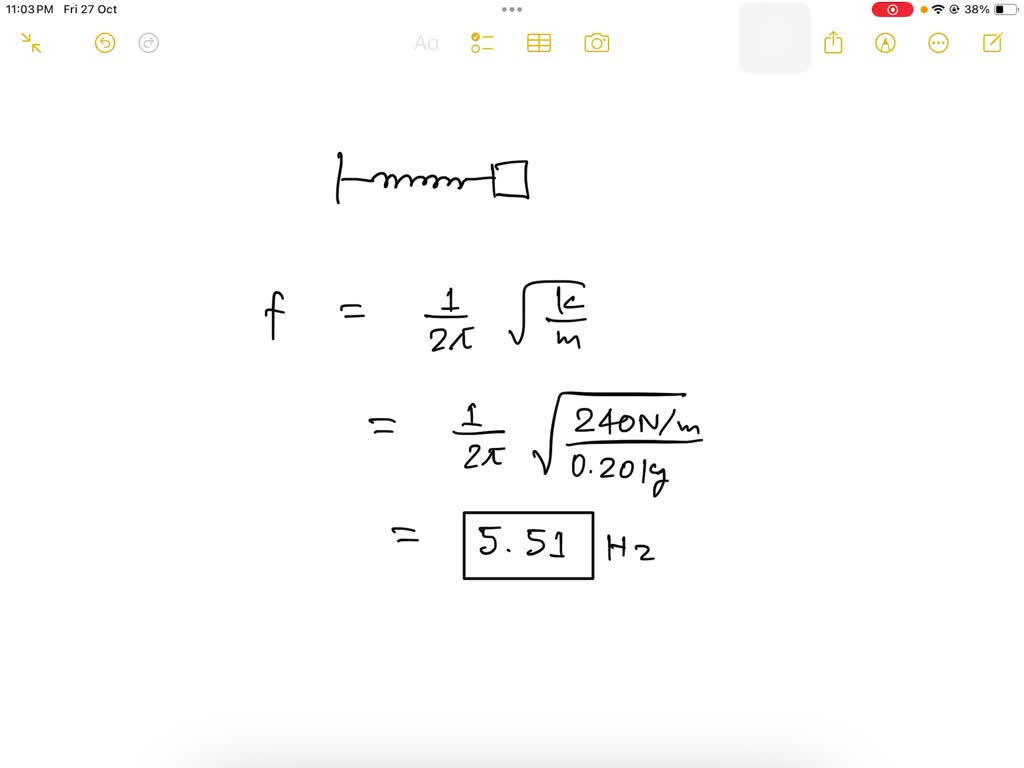 11:03 PM Fri 27 Oct 38%
Aa
f = 1/2π √k/m
= 1/2π √240N/m/0.20kg
= 5.51 Hz